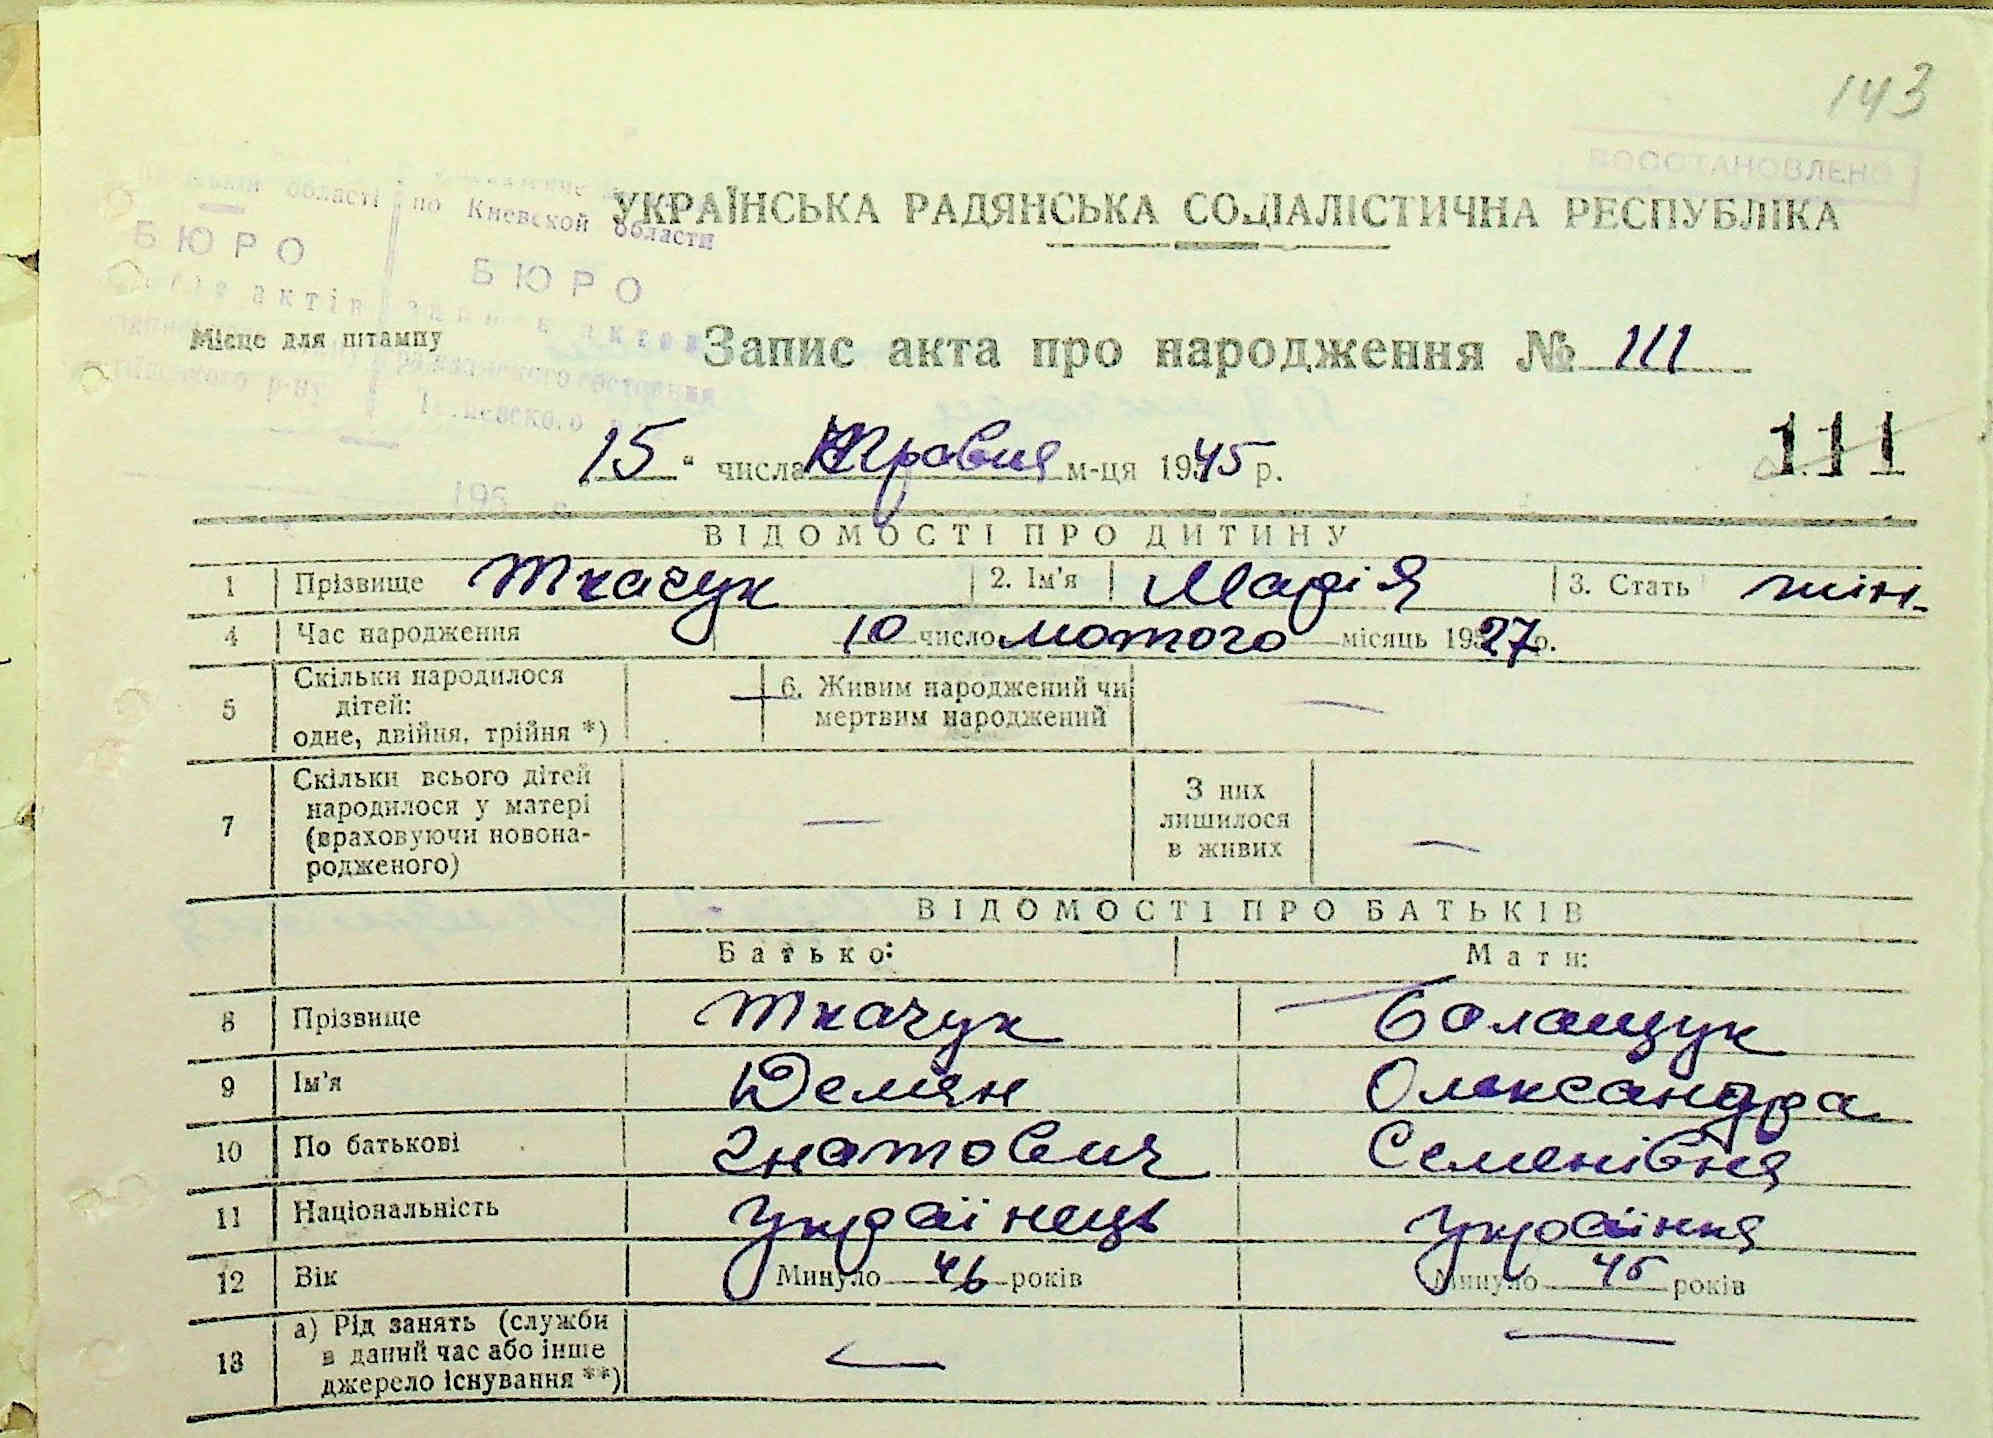 143
ВОССТАНОВЛЕНО
області по Киевской области
УКРАЇНСЬКА РАДЯНСЬКА СОЦІАЛІСТИЧНА РЕСПУБЛІКА
БЮРО БЮРО
актів актов
Місце для штампу
Запис акта про народження № 111
р-ну
15 " числа Травня м-ця 1945 р.
111
193
ВІДОМОСТІ ПРО ДИТИНУ
1 Прізвище Ткачук 2. Ім'я Марія 3. Стать жін.
4 Час народження 10 число лютого місяць 1927 р.
5 Скільки народилося дітей: одне, двійня, трійня *) — 6. Живим народжений чи мертвим народжений —
7 Скільки всього дітей народилося у матері (враховуючи новонародженого) — З них лишилося в живих —
ВІДОМОСТІ ПРО БАТЬКІВ
Батько: Мати:
8 Прізвище Ткачук Балащук
9 Ім'я Демян Олександра
10 По батькові Гнатович Семенівня
11 Національність Українець Українка
12 Вік Минуло 46 років Минуло 45 років
13 а) Рід занять (служби в даний час або інше джерело існування **) — —